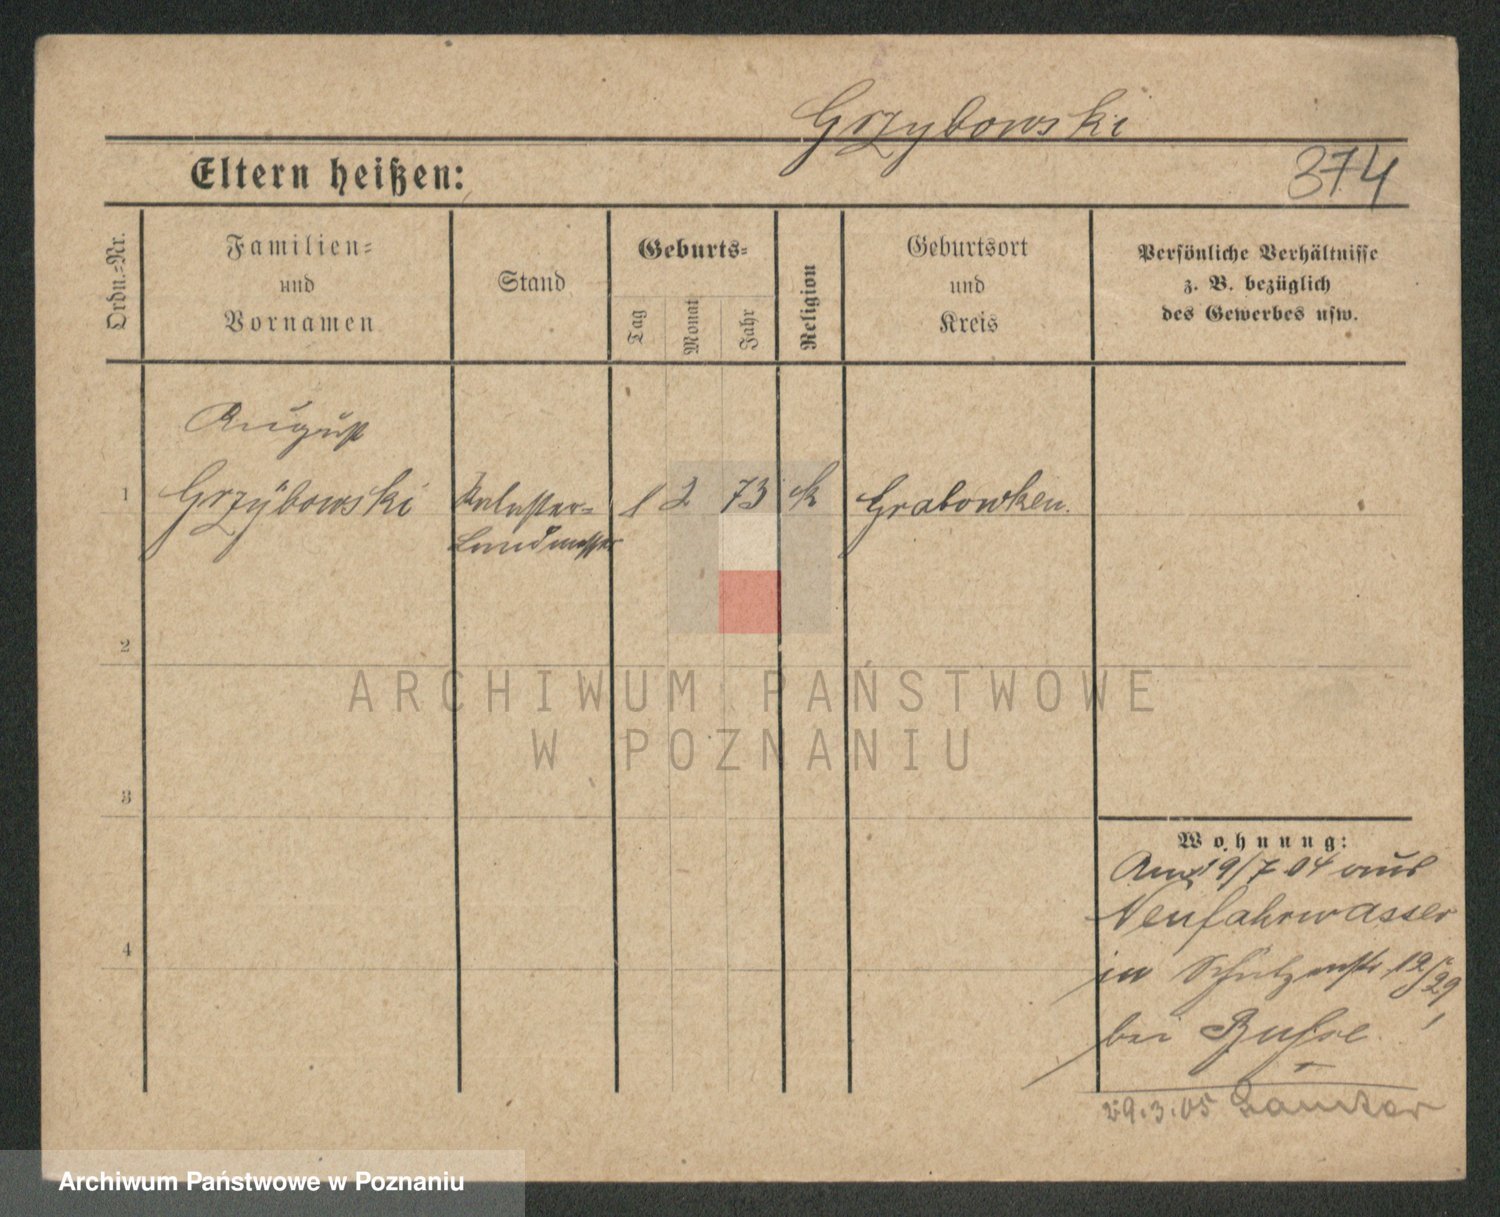 Grzybowski
374
Eltern heißen:
Ordn.=Nr.
Familien=
und
Vornamen
Stand
Geburts=
Tag
Monat
Jahr
Religion
Geburtsort
und
Kreis
Persönliche Verhältnisse
z. B. bezüglich
des Gewerbes usw.
August
1 Grzybowski Kataster= 1 2 73 k Grabowken.
Landmesser
2
ARCHIWUM PAŃSTWOWE
W POZNANIU
3
Wohnung:
Am 19/7 04 aus
Neufahrwasser
4
in Schützenstr 19/29,
bei Busse
29.3.05
Archiwum Państwowe w Poznaniu